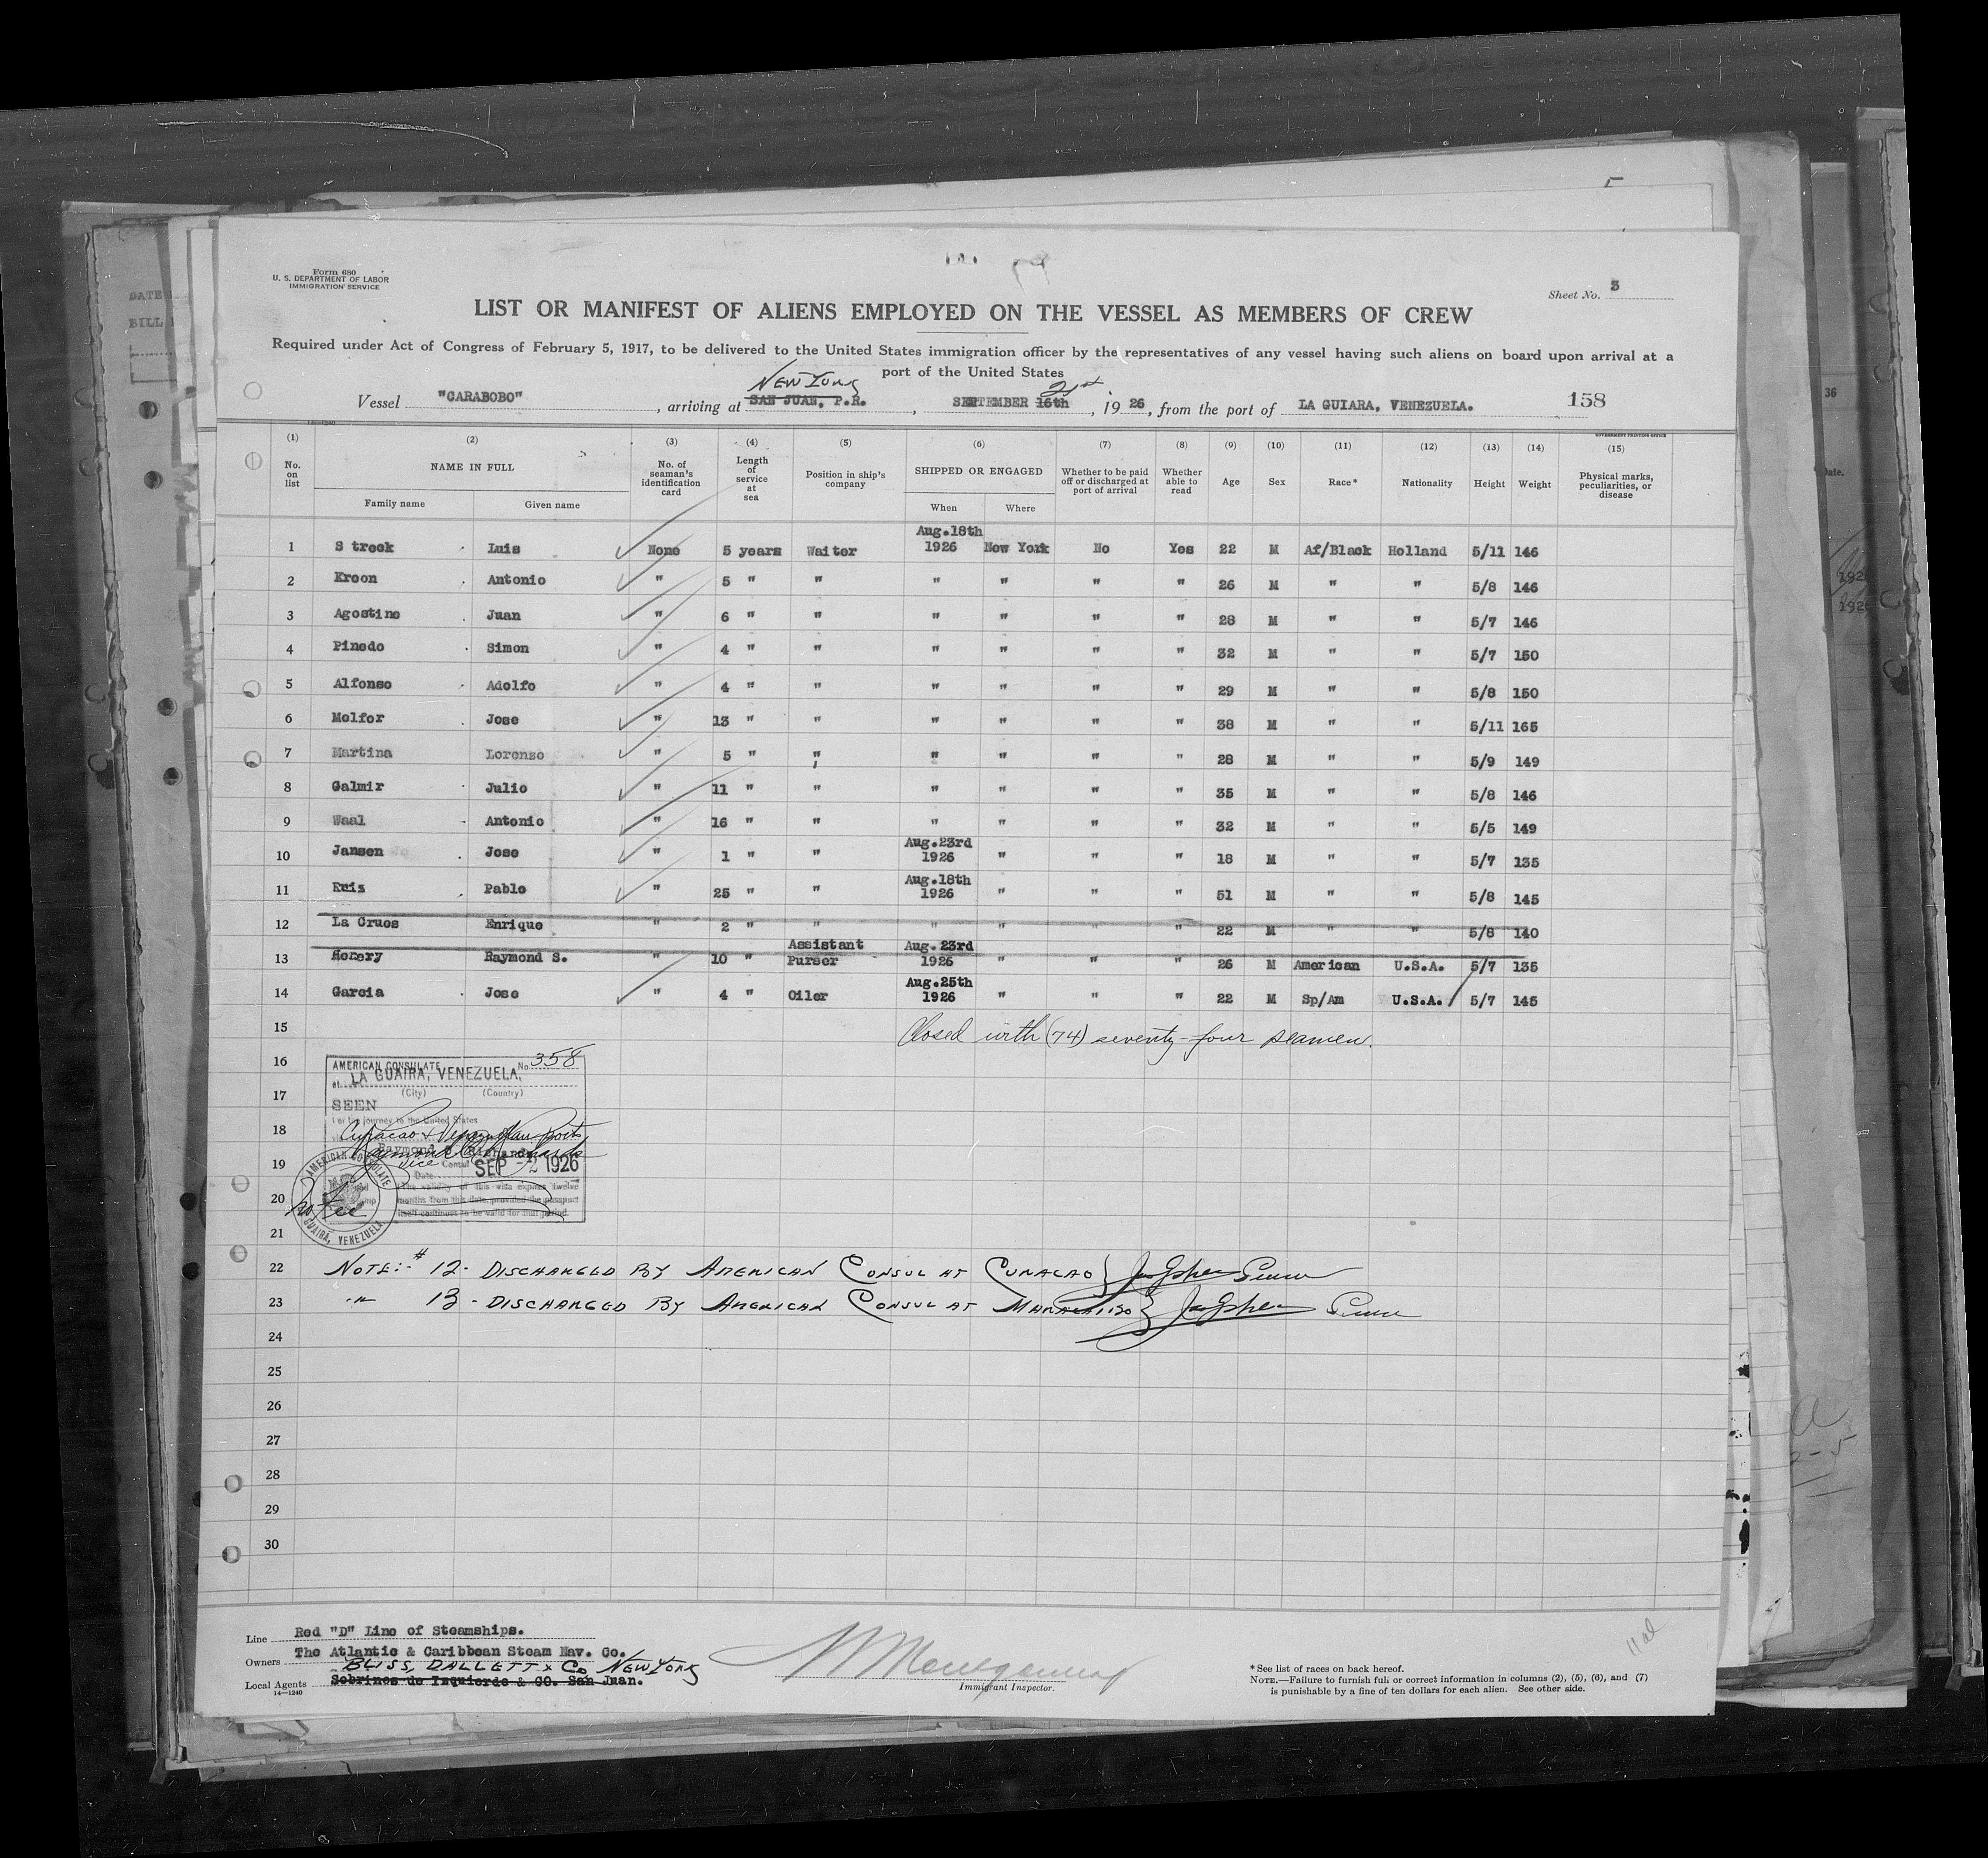 Form 680
U. S. DEPARTMENT OF LABOR
IMMIGRATION SERVICE
Sheet No. 3
LIST OR MANIFEST OF ALIENS EMPLOYED ON THE VESSEL AS MEMBERS OF CREW
Required under Act of Congress of February 5, 1917, to be delivered to the United States immigration officer by the representatives of any vessel having such aliens on board upon arrival at a
port of the United States
New York 21st
Vessel "CARABOBO", arriving at SAN JUAN, P.R., SEPTEMBER 16th, 1926, from the port of LA GUIARA, VENEZUELA. 158
14-1240 GOVERNMENT PRINTING OFFICE
(1) (2) (3) (4) (5) (6) (7) (8) (9) (10) (11) (12) (13) (14) (15)
No. on list NAME IN FULL Family name Given name No. of seaman's identification card Length of service at sea Position in ship's company SHIPPED OR ENGAGED When Where Whether to be paid off or discharged at port of arrival Whether able to read Age Sex Race* Nationality Height Weight Physical marks, peculiarities, or disease
1 Streek Luis None 5 years Waiter Aug.18th 1926 New York No Yes 22 M Af/Black Holland 5/11 146
2 Kroon Antonio " 5 " " " " " " 26 M " " 5/8 146
3 Agostino Juan " 6 " " " " " " 28 M " " 5/7 146
4 Pinedo Simon " 4 " " " " " " 32 M " " 5/7 150
5 Alfonso Adolfo " 4 " " " " " " 29 M " " 5/8 150
6 Melfor Jose " 13 " " " " " " 38 M " " 5/11 165
7 Martina Lorenzo " 5 " " " " " " 28 M " " 5/9 149
8 Galmir Julio " 11 " " " " " " 35 M " " 5/8 146
9 Waal Antonio " 16 " " " " " " 32 M " " 5/5 149
10 Jansen Jose " 1 " " Aug.23rd 1926 " " " 18 M " " 5/7 135
11 Ruiz Pablo " 25 " " Aug.18th 1926 " " " 51 M " " 5/8 145
12 La Crues Enrique " 2 " " " " " " 22 M " " 5/8 140
13 Honery Raymond S. " 10 " Assistant Purser Aug. 23rd 1926 " " " 26 M American U.S.A. 5/7 135
14 Garcia Jose " 4 " Oiler Aug.25th 1926 " " " 22 M Sp/Am U.S.A. 5/7 145
15 Closed with (74) seventy-four seamen.
16 AMERICAN CONSULATE No. 358
at LA GUAIRA, VENEZUELA,
17 (City) (Country)
SEEN
For the journey to the United States
18 Curacao & Venezuelan Ports
19 Vice Consul SEP -2 1926
Date
The validity of this visa expires twelve
20 months from this date, provided the passport
No Fee
itself continues to be valid for that period.
AMERICAN CONSULATE
GUAIRA, VENEZUELA
21
22 NOTE:- #12- DISCHARGED BY AMERICAN CONSUL AT CURACAO
23 " 13- DISCHARGED BY AMERICAN CONSUL AT MARACAIBO
24
25
26
27
28
29
30
Line Red "D" Line of Steamships.
Owners The Atlantic & Caribbean Steam Nav. Co.
BLISS, DALLETT & Co NEW YORK
Local Agents Sobrinos de Izquierdo & CO. San Juan.
14-1240
Immigrant Inspector.
*See list of races on back hereof.
NOTE.—Failure to furnish full or correct information in columns (2), (5), (6), and (7)
is punishable by a fine of ten dollars for each alien. See other side.